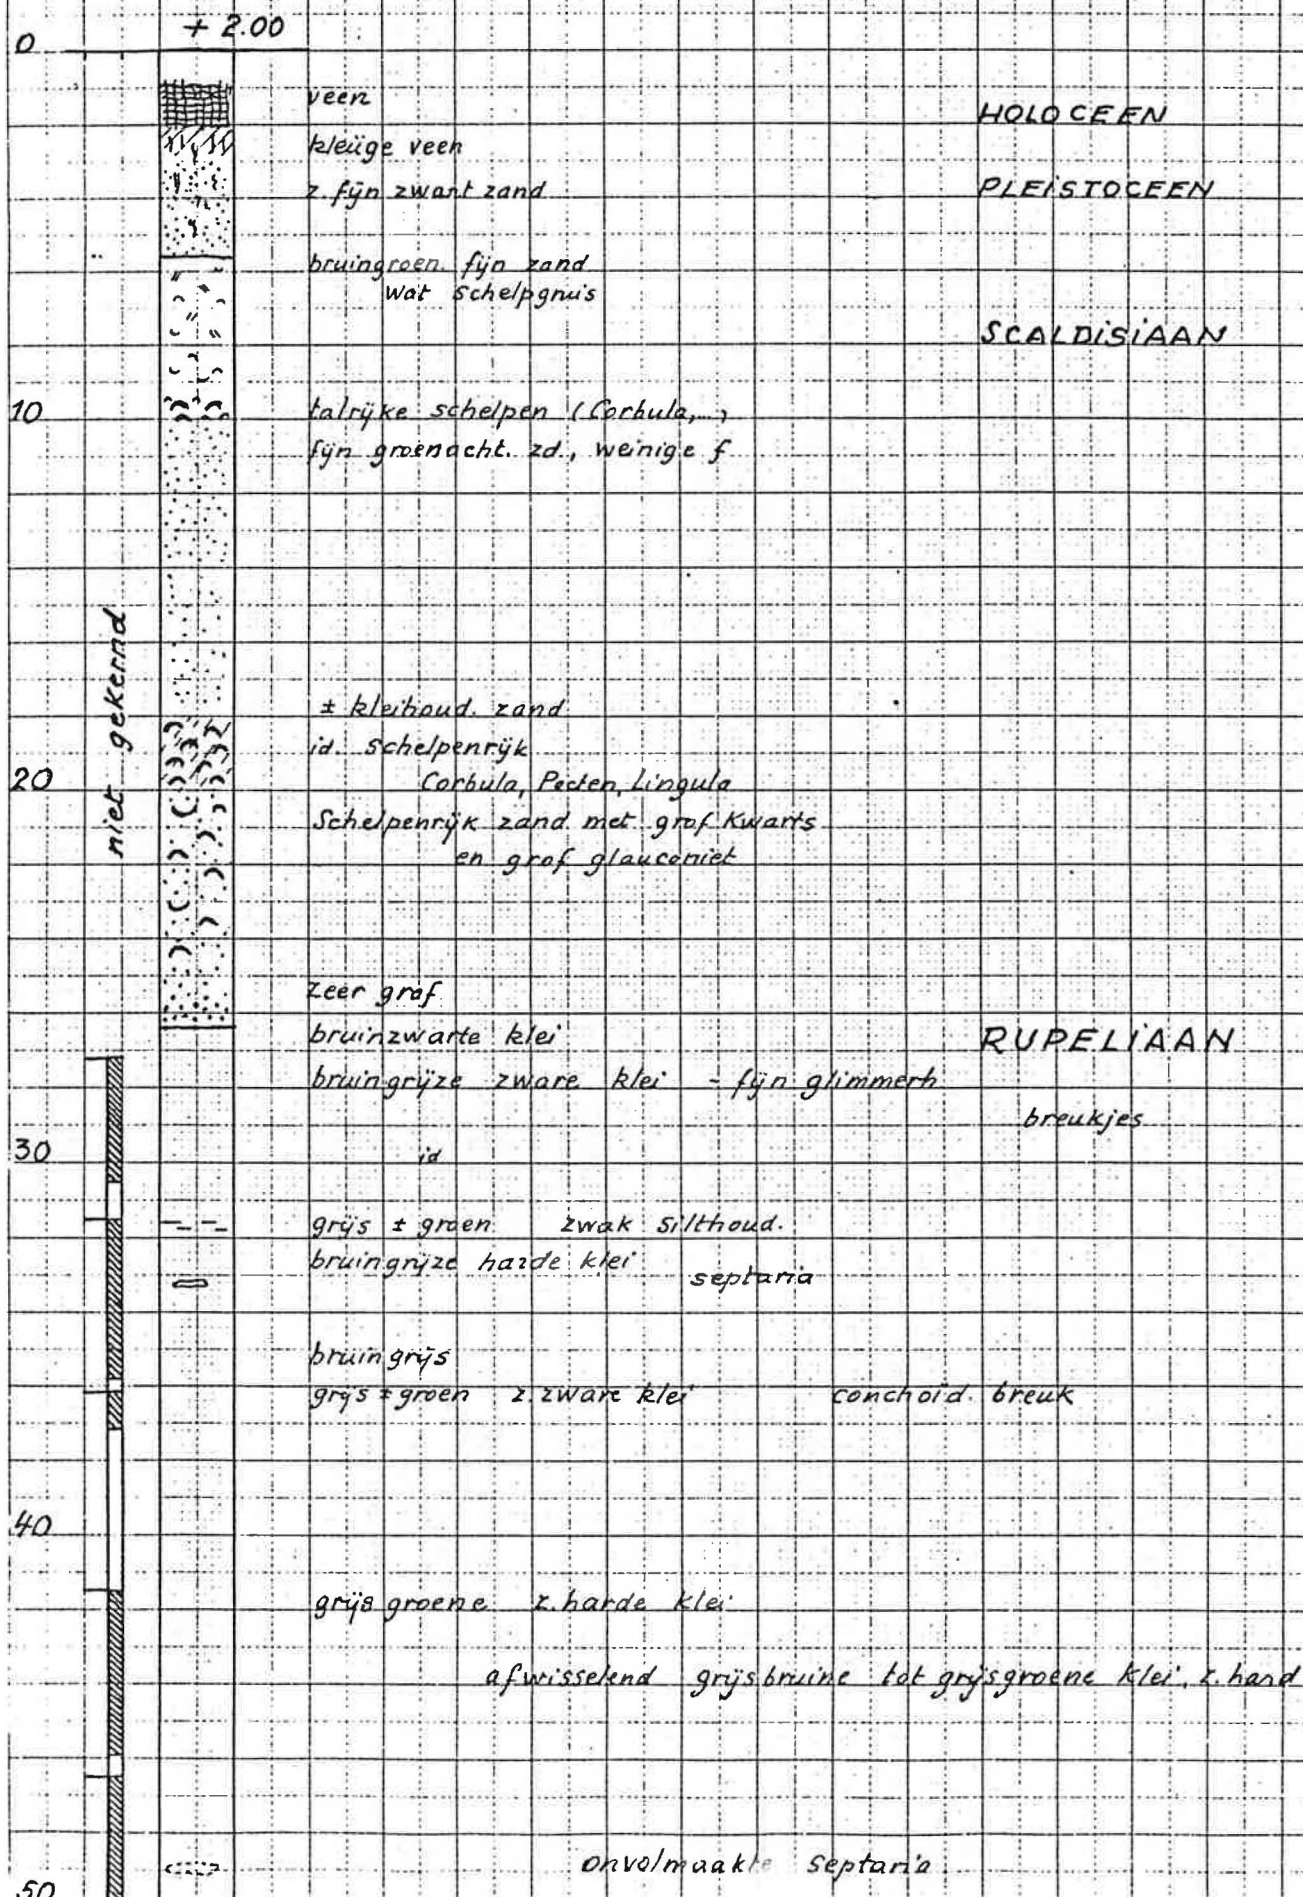 + 2.00
0
veen
HOLOCEEN
kleiige veen
z. fijn zwart zand
PLEISTOCEEN
bruingroen fijn zand
wat schelpgruis
SCALDISIAAN
10
talrijke schelpen (Corbula,...)
fijn groenacht. zd., weinige f
niet gekernd
± kleihoud. zand
id. schelpenrijk
20
Corbula, Pecten, Lingula
Schelpenrijk zand met grof Kwarts
en grof glauconiet
zeer grof
bruinzwarte klei
RUPELIAAN
bruingrijze zware klei - fijn glimmerh
breukjes
30
id
grijs ± groen zwak silthoud.
bruingrijze harde klei
septaria
bruingrijs
grijs ± groen z. zware klei conchoid. breuk
40
grijsgroene z. harde klei
afwisselend grijsbruine tot grijsgroene klei, z. hard
onvolmaakte septaria
50